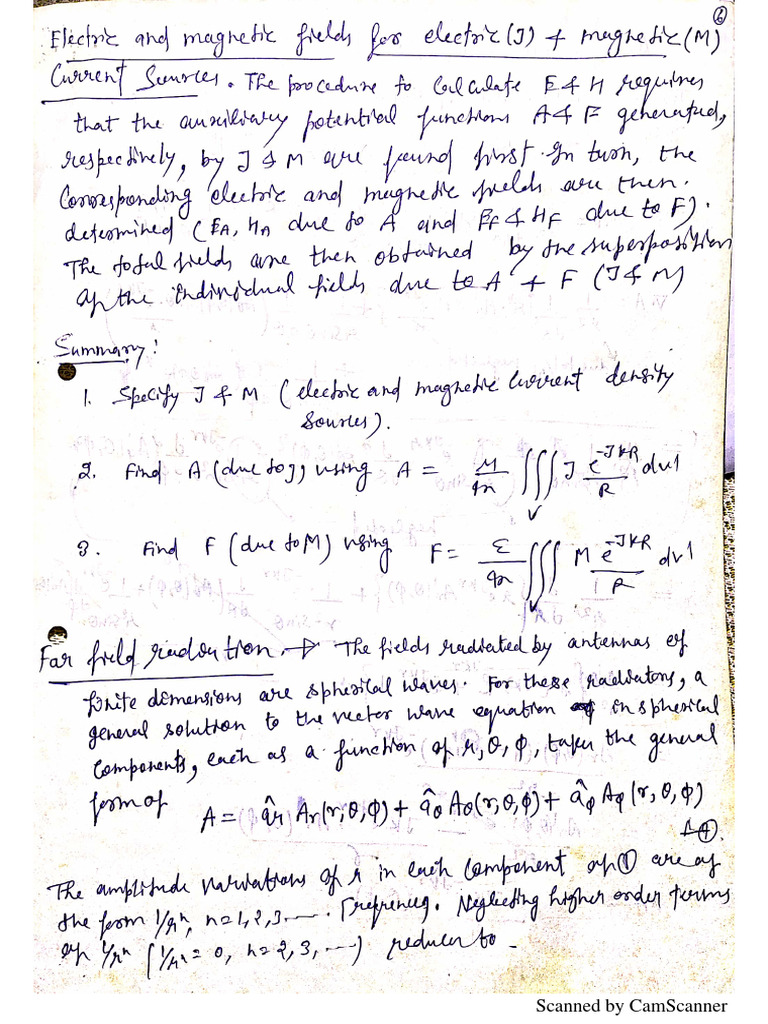 6
Electric and magnetic fields for electric (J) + magnetic (M)
Current Sources. The procedure to Calculate E & H requires
that the auxiliary potential functions A & F generated,
respectively, by J & M are found first. In turn, the
Corresponding electric and magnetic fields are then.
determined (EA, HA due to A and EF & HF due to F).
The total fields are then obtained by the superposition
of the individual fields due to A + F (J & M)
Summary:
1. Specify J & M (electric and magnetic Current density
sources).
2. Find A (due to J) using A = μ/4π ∭V J e^-JkR/R dv'
3. Find F (due to M) using F = ε/4π ∭V M e^-JkR/R dv'
Far field radiation. → The fields radiated by antennas of
finite dimensions are spherical waves. For these radiators, a
general solution to the vector wave equation in spherical
Components, each as a function of r, θ, φ, takes the general
form of A = âr Ar(r,θ,φ) + âθ Aθ(r,θ,φ) + âφ Aφ(r,θ,φ)
The amplitude variations of r in each component of ① are of
the form 1/r^n, n=1,2,3..... Neglecting higher order terms
of 1/r^n (1/r^n = 0, n=2,3,...) reduces to -
Scanned by CamScanner